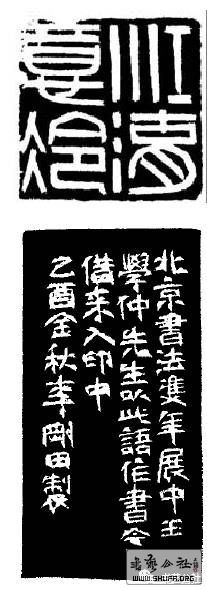 北京書法雙年展中王
學仲先生以此語作書今
借来入印中
乙酉金秋李剛田製
書藝公社
WWW.SHUFA.ORG